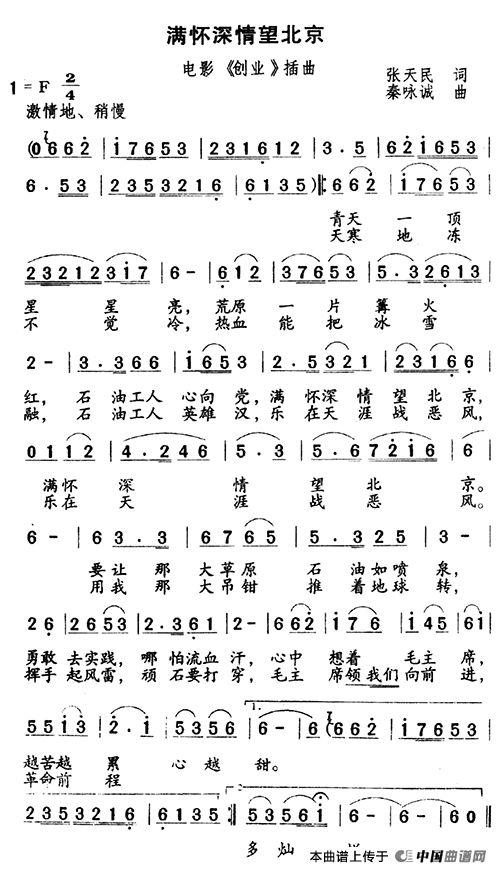 满怀深情望北京
电影《创业》插曲
张天民 词
秦咏诚 曲
1=F 2/4
激情地、稍慢
(0662 | 17653 | 2312312 | 3·5 | 621653 |
6·53 | 23523216 | 6135) |: 662 | 17653 |
青天 一 顶
天寒 地 冻
23212317 | 6- | 612 | 37653 | 5·32613 |
星 星 亮，荒原 一 片 篝 火
不 觉 冷，热血 能 把 冰 雪
2- | 3·366 | 1653 | 2·532 | 23166 |
红，石 油工人 心向 党，满 怀深 情 望北 京，
融，石 油工人 英雄 汉，乐 在天 涯 战恶 风，
0112 | 4·246 | 5·35 | 5·67216 | 6
满怀 深 情 望 北 京。
乐在 天 涯 战 恶 风。
6- | 63·3 | 6765 | 5·325 | 3- |
要让 那 大草原 石 油如喷 泉，
用我 那 大吊钳 推 着地球 转，
26 | 6532 | 2·361 | 2- | 662 | 176 | 1451 | 61 |
勇敢 去实践，哪 怕流血 汗，心中 想着 毛主 席，
挥手 起风雷，顽 石要打 穿，毛主 席领我们 向前 进，
5513 | 2·1 | 5356 | 6- | 6(662 | 17653 |
越苦越 累 心越 甜。
革命前 程
1.
23523216 | 6135 :| 53561 | 6- | 6- | 60 ‖
2.
多 灿
本曲谱上传于 中国曲谱网